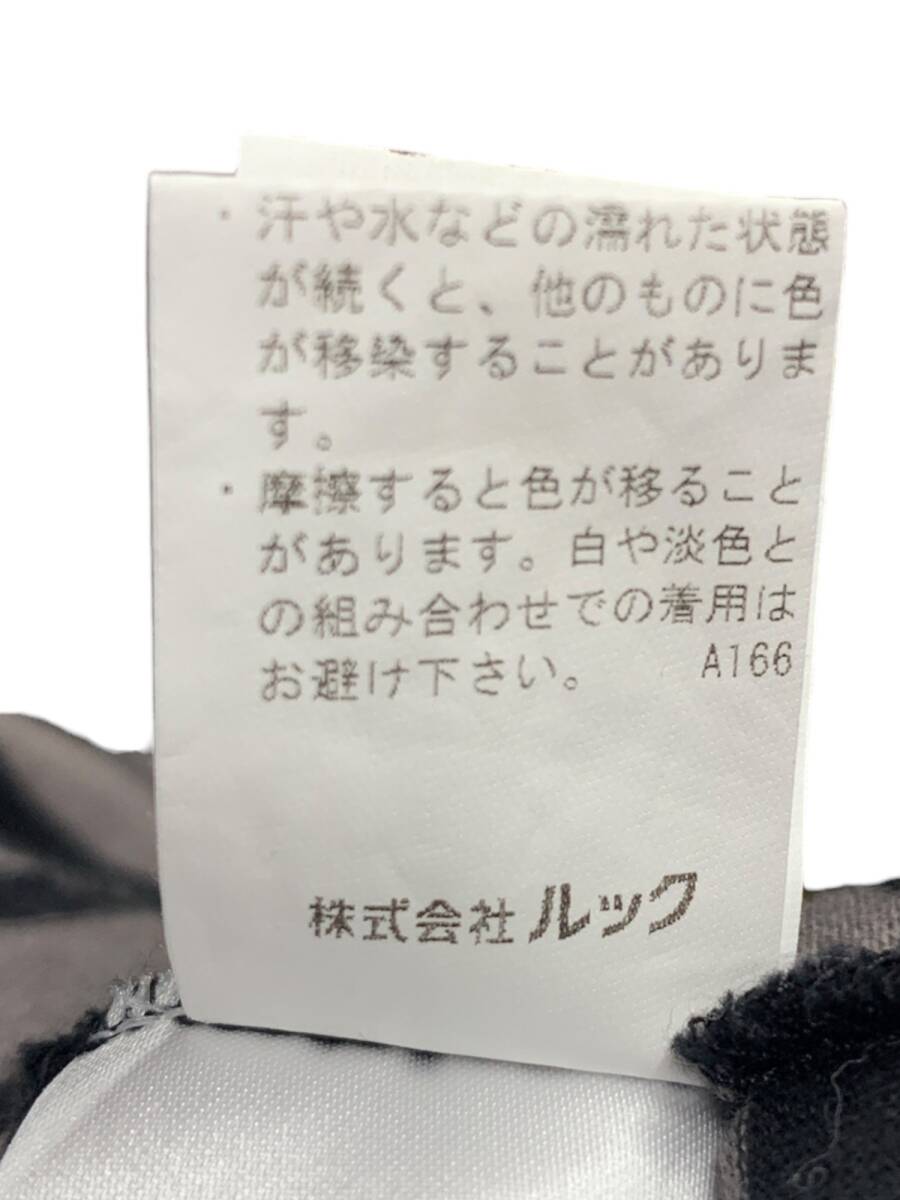 ・汗や水などの濡れた状態
が続くと、他のものに色
が移染することがありま
す。
・摩擦すると色が移ること
があります。白や淡色と
の組み合わせでの着用は
お避け下さい。 A166
株式会社ルック